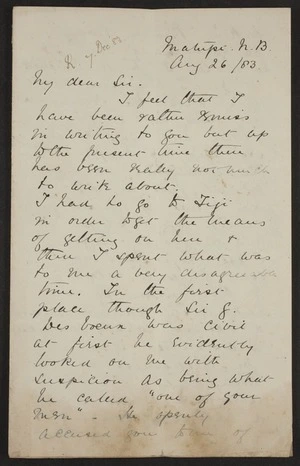 R 7 Dec 83
Matupi. N.B.
Aug 26/83
My dear Sir.
I feel that I
have been rather remiss
in writing to you but up
to the present time there
has been really not much
to write about.
I had to go to Fiji
in order to get the means
of getting on here &
then I spent what was
to me a very disagreeable
time. In the first
place though Sir G.
Des Voeux was civil
at first he evidently
looked on me with
suspicion as being what
he called, "one of your
men". He openly
accused you of